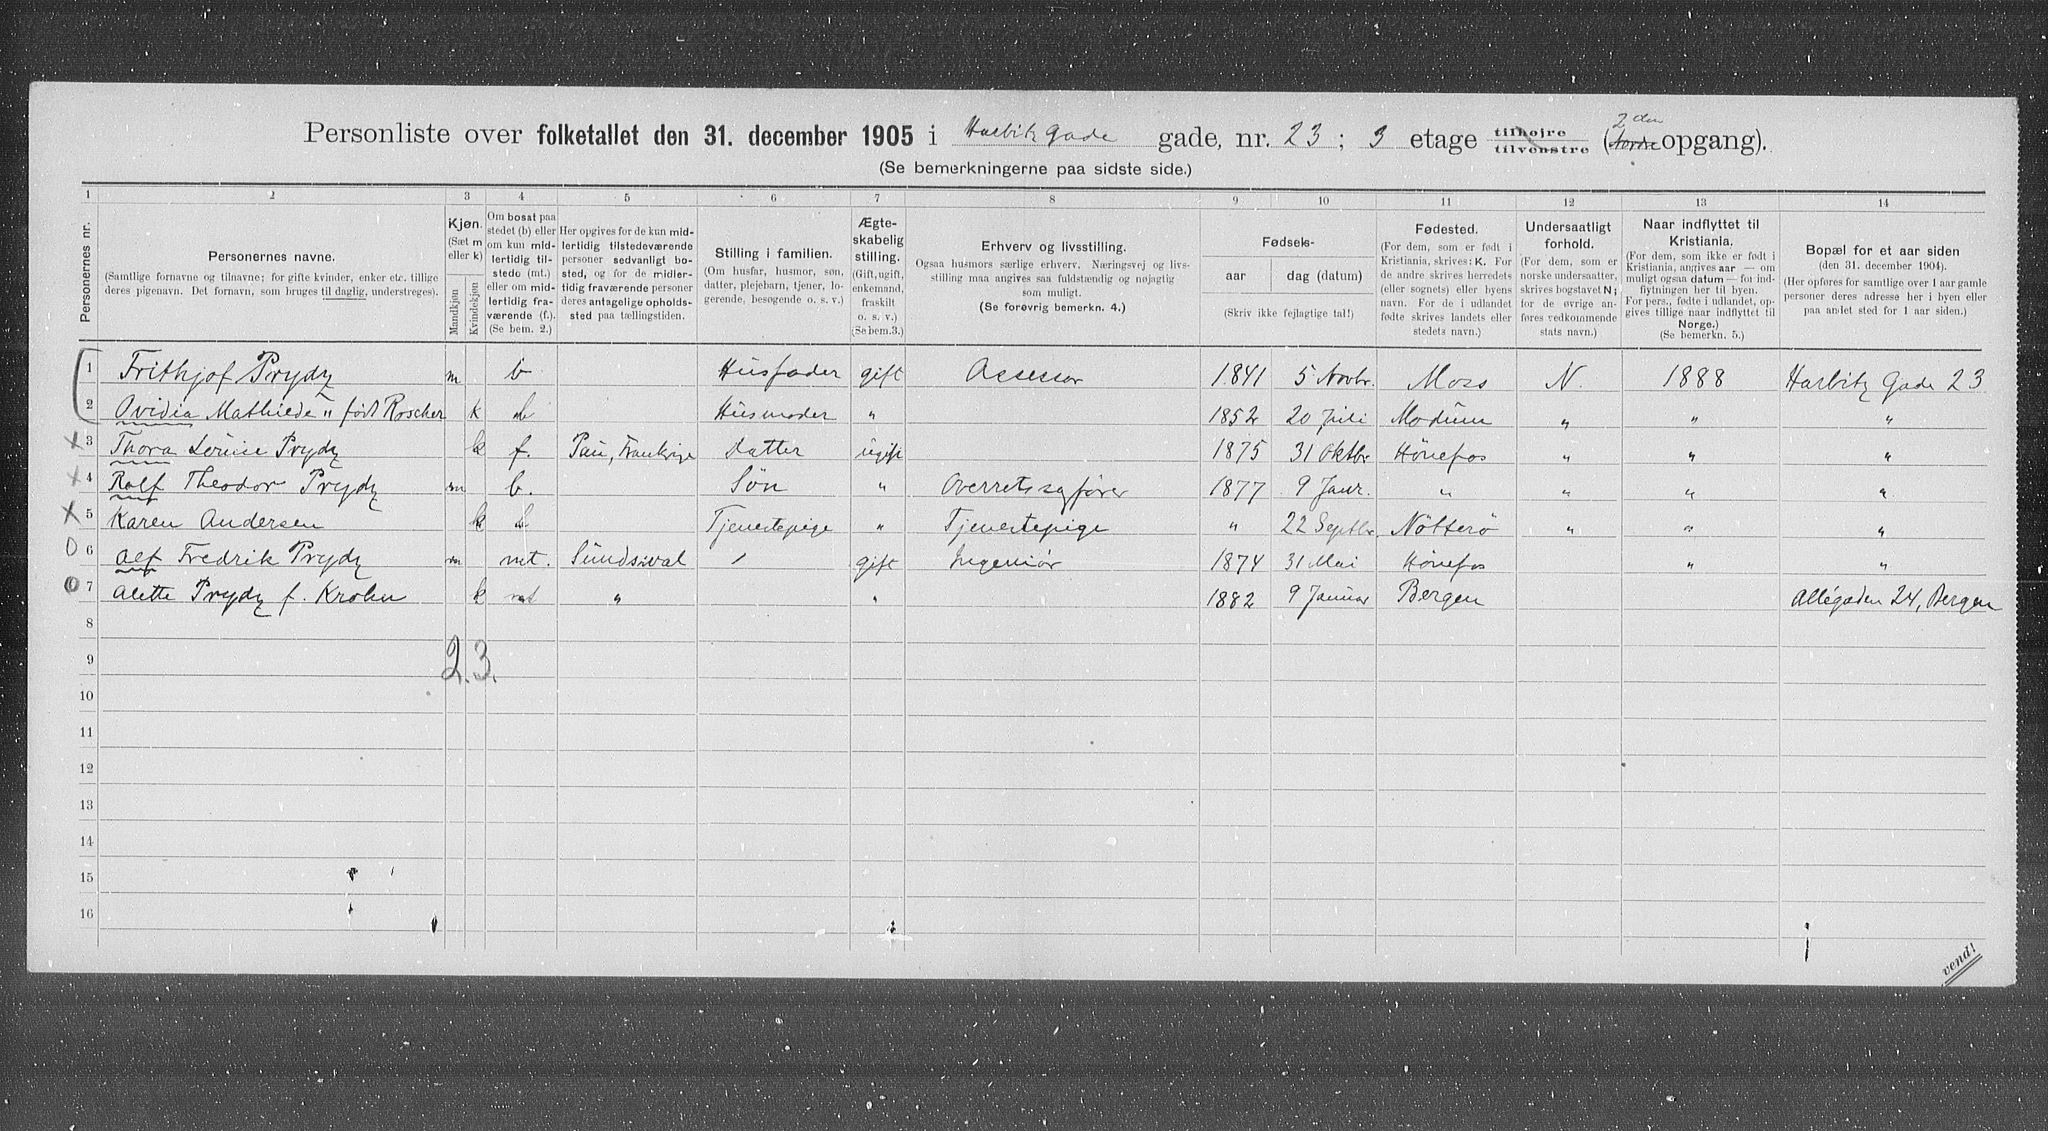 Personliste over folketallet den 31. december 1905 i Harbitz Gade gade, nr. 23; 3 etage tilhøire tilvenstre (2den opgang).
(Se bemerkningerne paa sidste side.)
1 2 3 4 5 6 7 8 9 10 11 12 13 14
Personernes nr.
Personernes navne.
(Samtlige fornavne og tilnavne; for gifte kvinder, enker etc. tillige
deres pigenavn. Det fornavn, som bruges til daglig, understreges).
Kjøn.
(Sæt m
eller k)
Mandkjøn
Kvindekjøn
Om bosat paa
stedet (b) eller
om kun mid-
lertidig til-
stede (mt.)
eller om mid-
lertidig fra-
værende (f.).
(Se bem. 2.)
Her opgives for de kun mid-
lertidig tilstedeværende
personer sedvanligt bo-
sted, og for de midler-
tidig fraværende personer
deres antagelige opholds-
sted paa tællingstiden.
Stilling i familien.
(Om husfar, husmor, søn,
datter, plejebarn, tjener, lo-
gerende, besøgende o. s. v.)
Ægte-
skabelig
stilling.
(Gift, ugift,
enkemand,
fraskilt
o. s. v.)
(Se bem.3.)
Erhverv og livsstilling.
Ogsaa husmors særlige erhverv. Næringsvej og livs-
stilling maa angives saa fuldstændig og nøjagtig
som muligt.
(Se forøvrig bemerkn. 4.)
Fødsels-
aar dag (datum)
(Skriv ikke fejlagtige tal!)
Fødested.
(For dem, som er født i
Kristiania, skrives: K. For
de andre skrives herredets
(eller sognets) eller byens
navn. For de i udlandet
fødte skrives landets eller
stedets navn.)
Undersaatligt
forhold.
(For de, som er
norske undersaatter,
skrives bogstavet N;
for de øvrige an-
føres vedkommende
stats navn.)
Naar indflyttet til
Kristiania.
(For dem, som ikke er født i
Kristiania, angives aar — om
muligt ogsaa datum — for ind-
flytningen her til byen.
For pers., fødte i udlandet, op-
gives tillige naar indflyttet til
Norge.)
(Se bemerkn. 5.)
Bopæl for et aar siden
(den 31. december 1904).
(Her opføres for samtlige over 1 aar gamle
personer deres adresse her i byen eller
paa andet sted for 1 aar siden.)
1 Frithjof Prydz m b Husfader gift Assessor 1841 5 Novbr. Moss N. 1888 Harbitz Gade 23
2 Ovidia Mathilde " født Roscher k b Husmoder " 1852 20 Juli Modum " " "
3 Thora Louise Prydz k f. Pau, Frankrige Datter ugift 1875 31 Oktbr Hönefos " " "
4 Rolf Theodor Prydz m b. Søn " Overretssagfører 1877 9 Janr. " " " "
5 Karen Andersen k b Tjenestepige " Tjenestepige " 22 Septbr. Nötterö " " "
6 Alf Fredrik Prydz m mt. Sundsvval gift Ingeniør 1874 31 Mai Hönefos " "
7 Alette Prydz f. Krohn k mt " " 1882 9 Januar Bergen Allégaden 24, Bergen
8
2. 3.
9
10
11
12
13
14
15
16
vend!